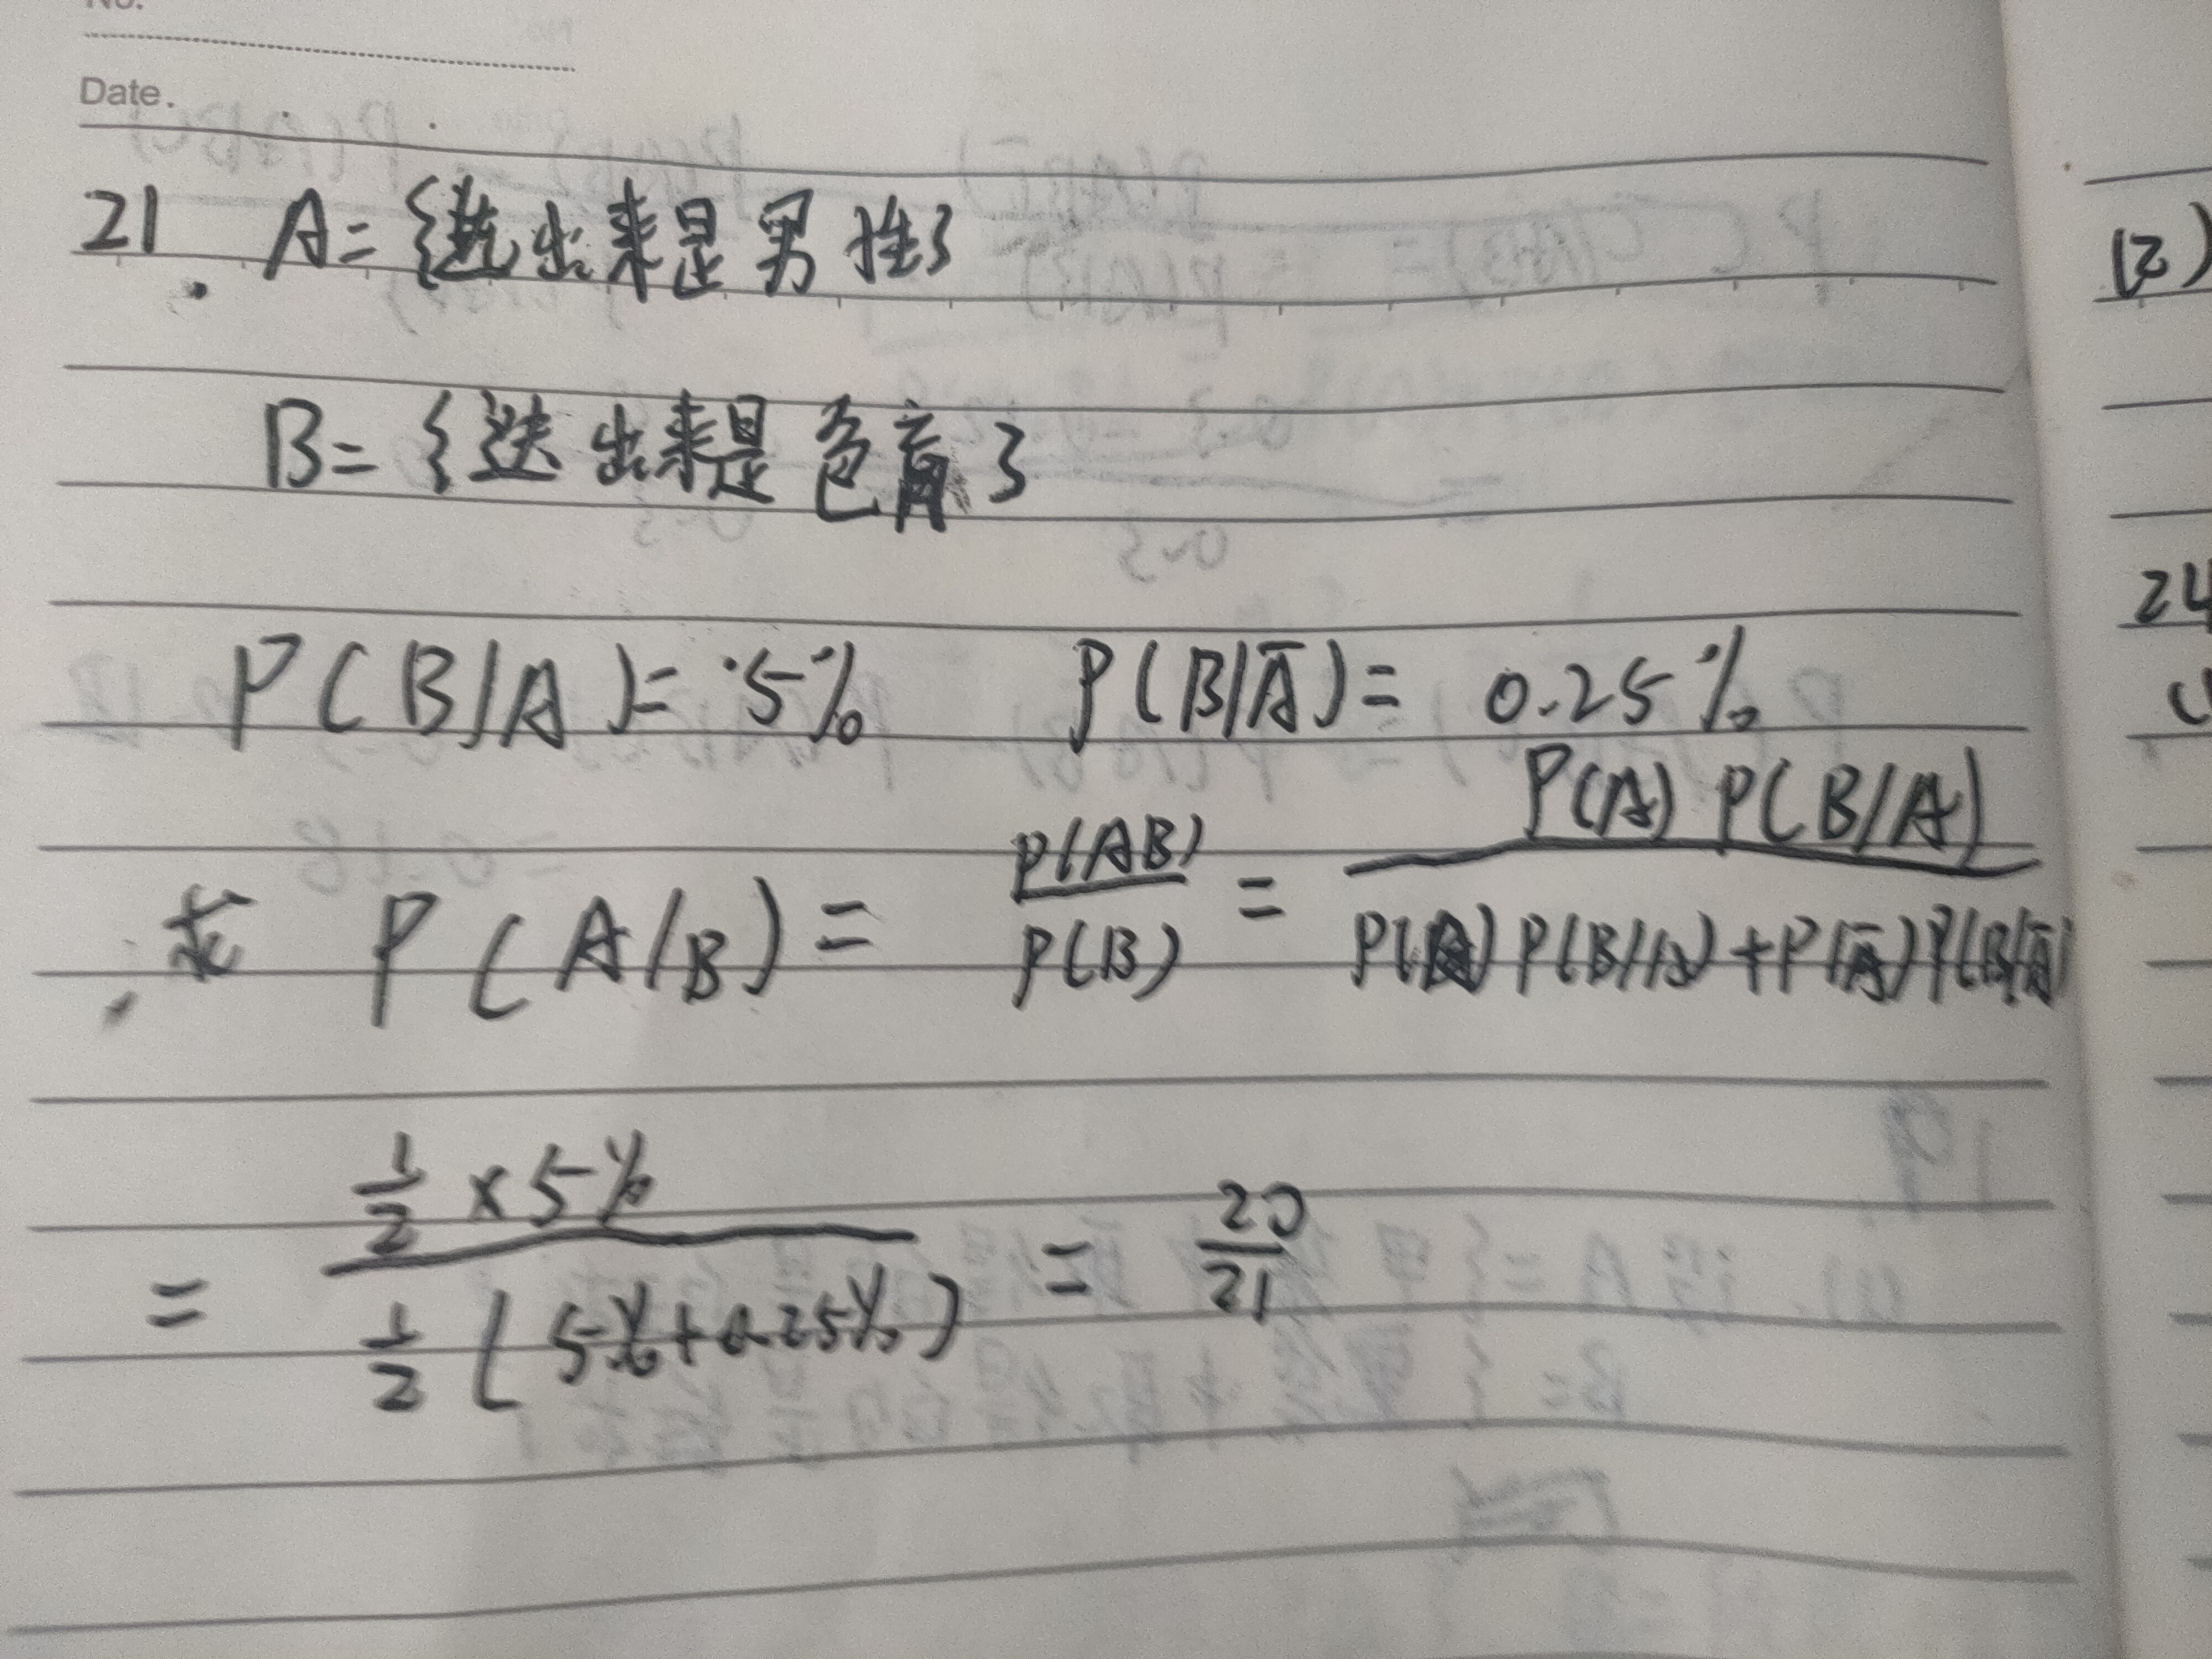 No.
Date.
21. A={选出来是男性}
B={选出来是色盲}
P(B/A)=5% P(B/Ā)= 0.25%
求 P(A/B)= P(AB)/P(B) = P(A)P(B/A)/P(A)P(B/A)+P(Ā)P(B/Ā)
= ½×5%/½(5%+0.25%) = 20/21
(2)
24